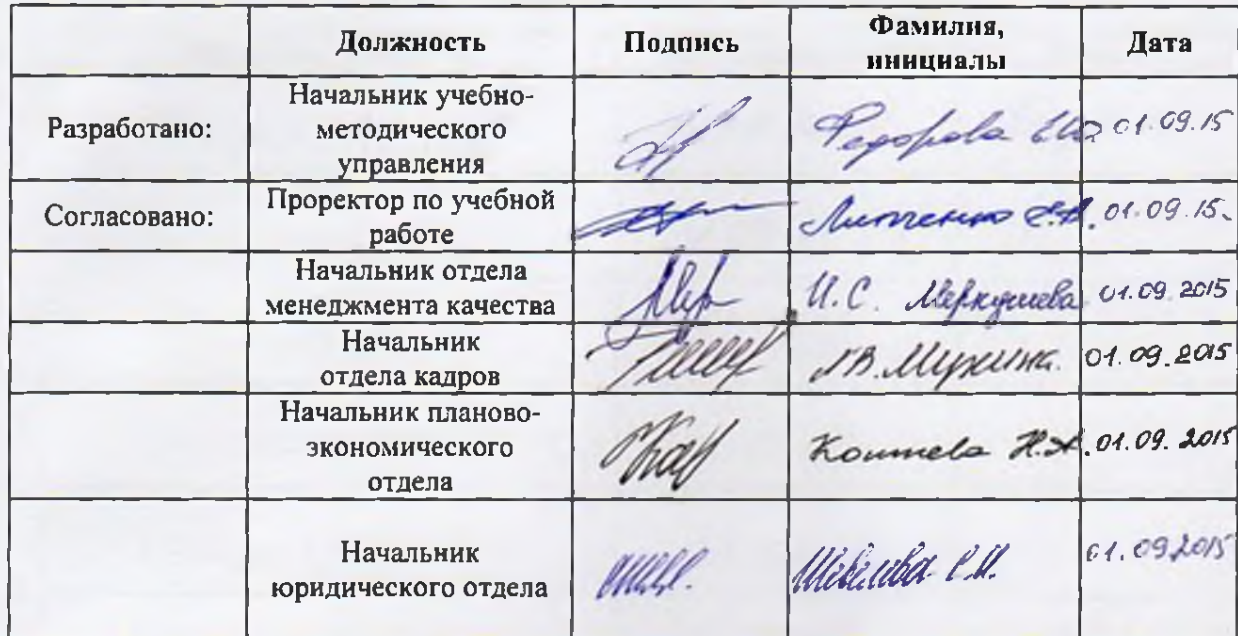 Должность Подпись Фамилия, инициалы Дата
Разработано: Начальник учебно-
методического
управления
Федорова 01.09.15
Согласовано: Проректор по учебной
работе
01.09.15.
Начальник отдела
менеджмента качества
И.С. Меркушева 01.09.2015
Начальник
отдела кадров
Мухина. 01.09.2015
Начальник планово-
экономического
отдела
Н.А. 01.09.2015
Начальник
юридического отдела
01.09.2015